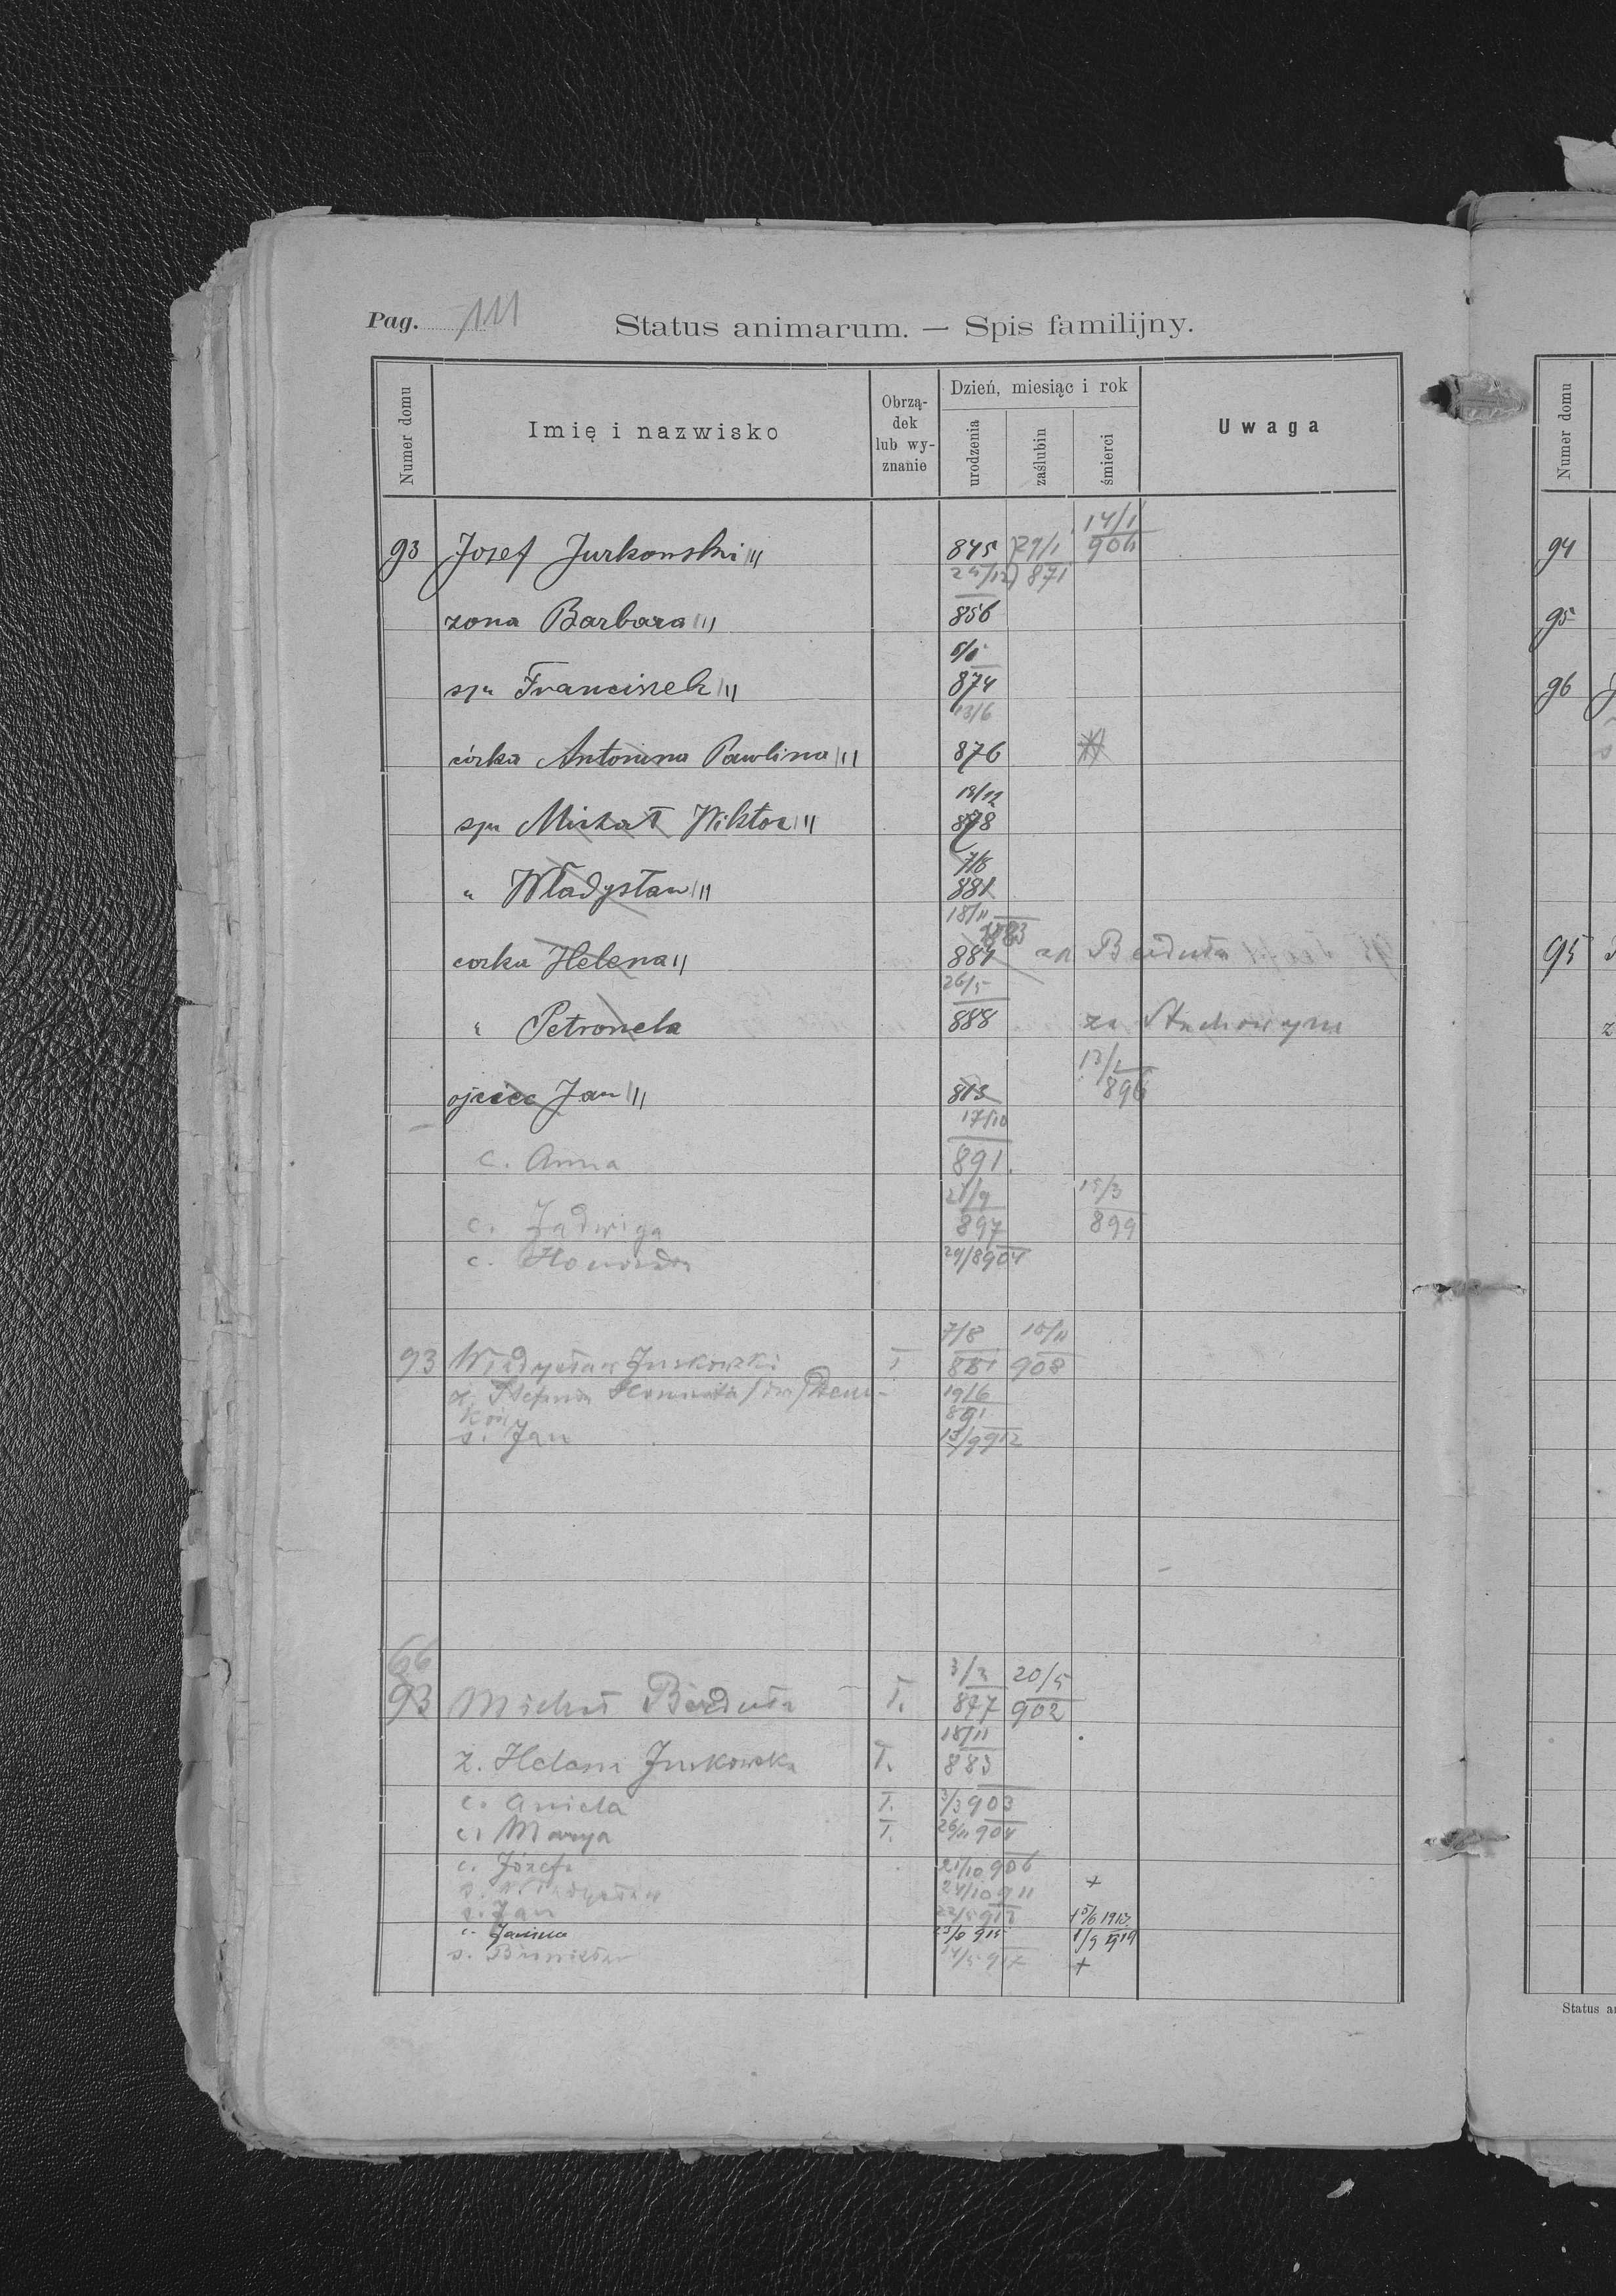 Pag. 111
Status animarum. — Spis familijny.
Numer domu
Imię i nazwisko
Obrzą-
dek
lub wy-
znanie
Dzień, miesiąc i rok
urodzenia
zaślubin
śmierci
Uwaga
14/1
93 Josef Jurkowski 845 29/1 906
871
zona Barbara 856
syn Franciszek 874
13/6
córka Antonina Pawlina 876
19/12
syn Michał Wiktor 878
7/8
" Władysław 881
18/11
1883
corka Helena 881 za Berduła
26/5
" Petronela 888 za
ojciec Jan 813 896
17/10
c. Anna 891
21/9 15/3
c. Jadwiga 897 899
c. 29/8 904
7/8 10/11
93 Władysław Jurkowski 881 908
ż. Stefania
19/6
891
s. Jan 13/9 912
66
3/3 20/5
93 Michał Berduła T. 877 902
18/11
ż. Helena Jurkowska T. 883
c. Aniela T. 3/3 903
c. Marya T. 26/11 904
c. Józefa 21/10 906
s. Władysław 24/10 911 +
s. Jan 15/6 1913
c. Janina 1/9 1919
s. Bronisław +
94
95
96
95
Numer domu
Status a